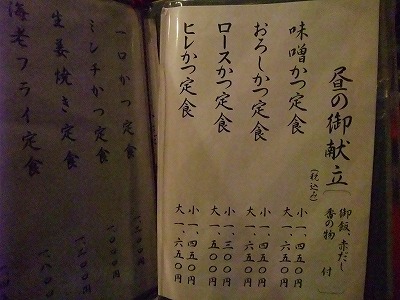 昼の御献立
(税込み)
御飯、赤だし
香の物 付
味噌かつ定食
小 一、四五〇円
大 一、六五〇円
おろしかつ定食
小 一、四五〇円
大 一、六五〇円
ロースかつ定食
小 一、三〇〇円
大 一、五〇〇円
ヒレかつ定食
小 一、四五〇円
大 一、六五〇円
一口かつ定食
ミンチかつ定食
生姜焼き定食
海老フライ定食